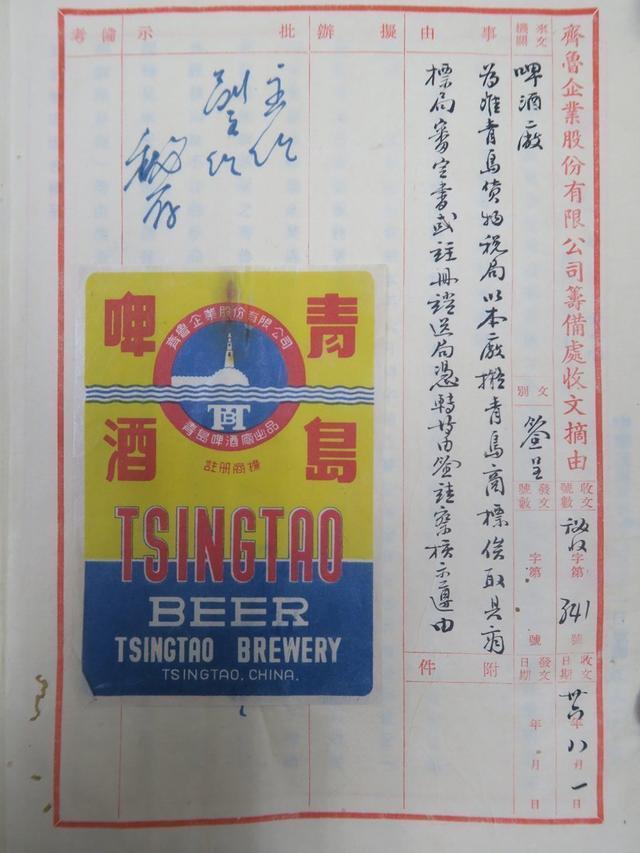 齊魯企業股份有限公司籌備處收文摘由
收文號數
字第
341
號
收文日期
卅六年八月一日
來文機關
啤酒廠
文別
簽呈
發文號數
字第
號
發文日期
年
月
日
事由
為准青島貨物稅局以本廠撥青島商標俟取具商
標局審定書或註冊證送局憑轉等由簽註察核示遵由
附件
擬辦
批示
備考
青島
啤酒
齊魯企業股份有限公司
TBT
青島啤酒廠出品
註冊商標
TSINGTAO
BEER
TSINGTAO BREWERY
TSINGTAO, CHINA.